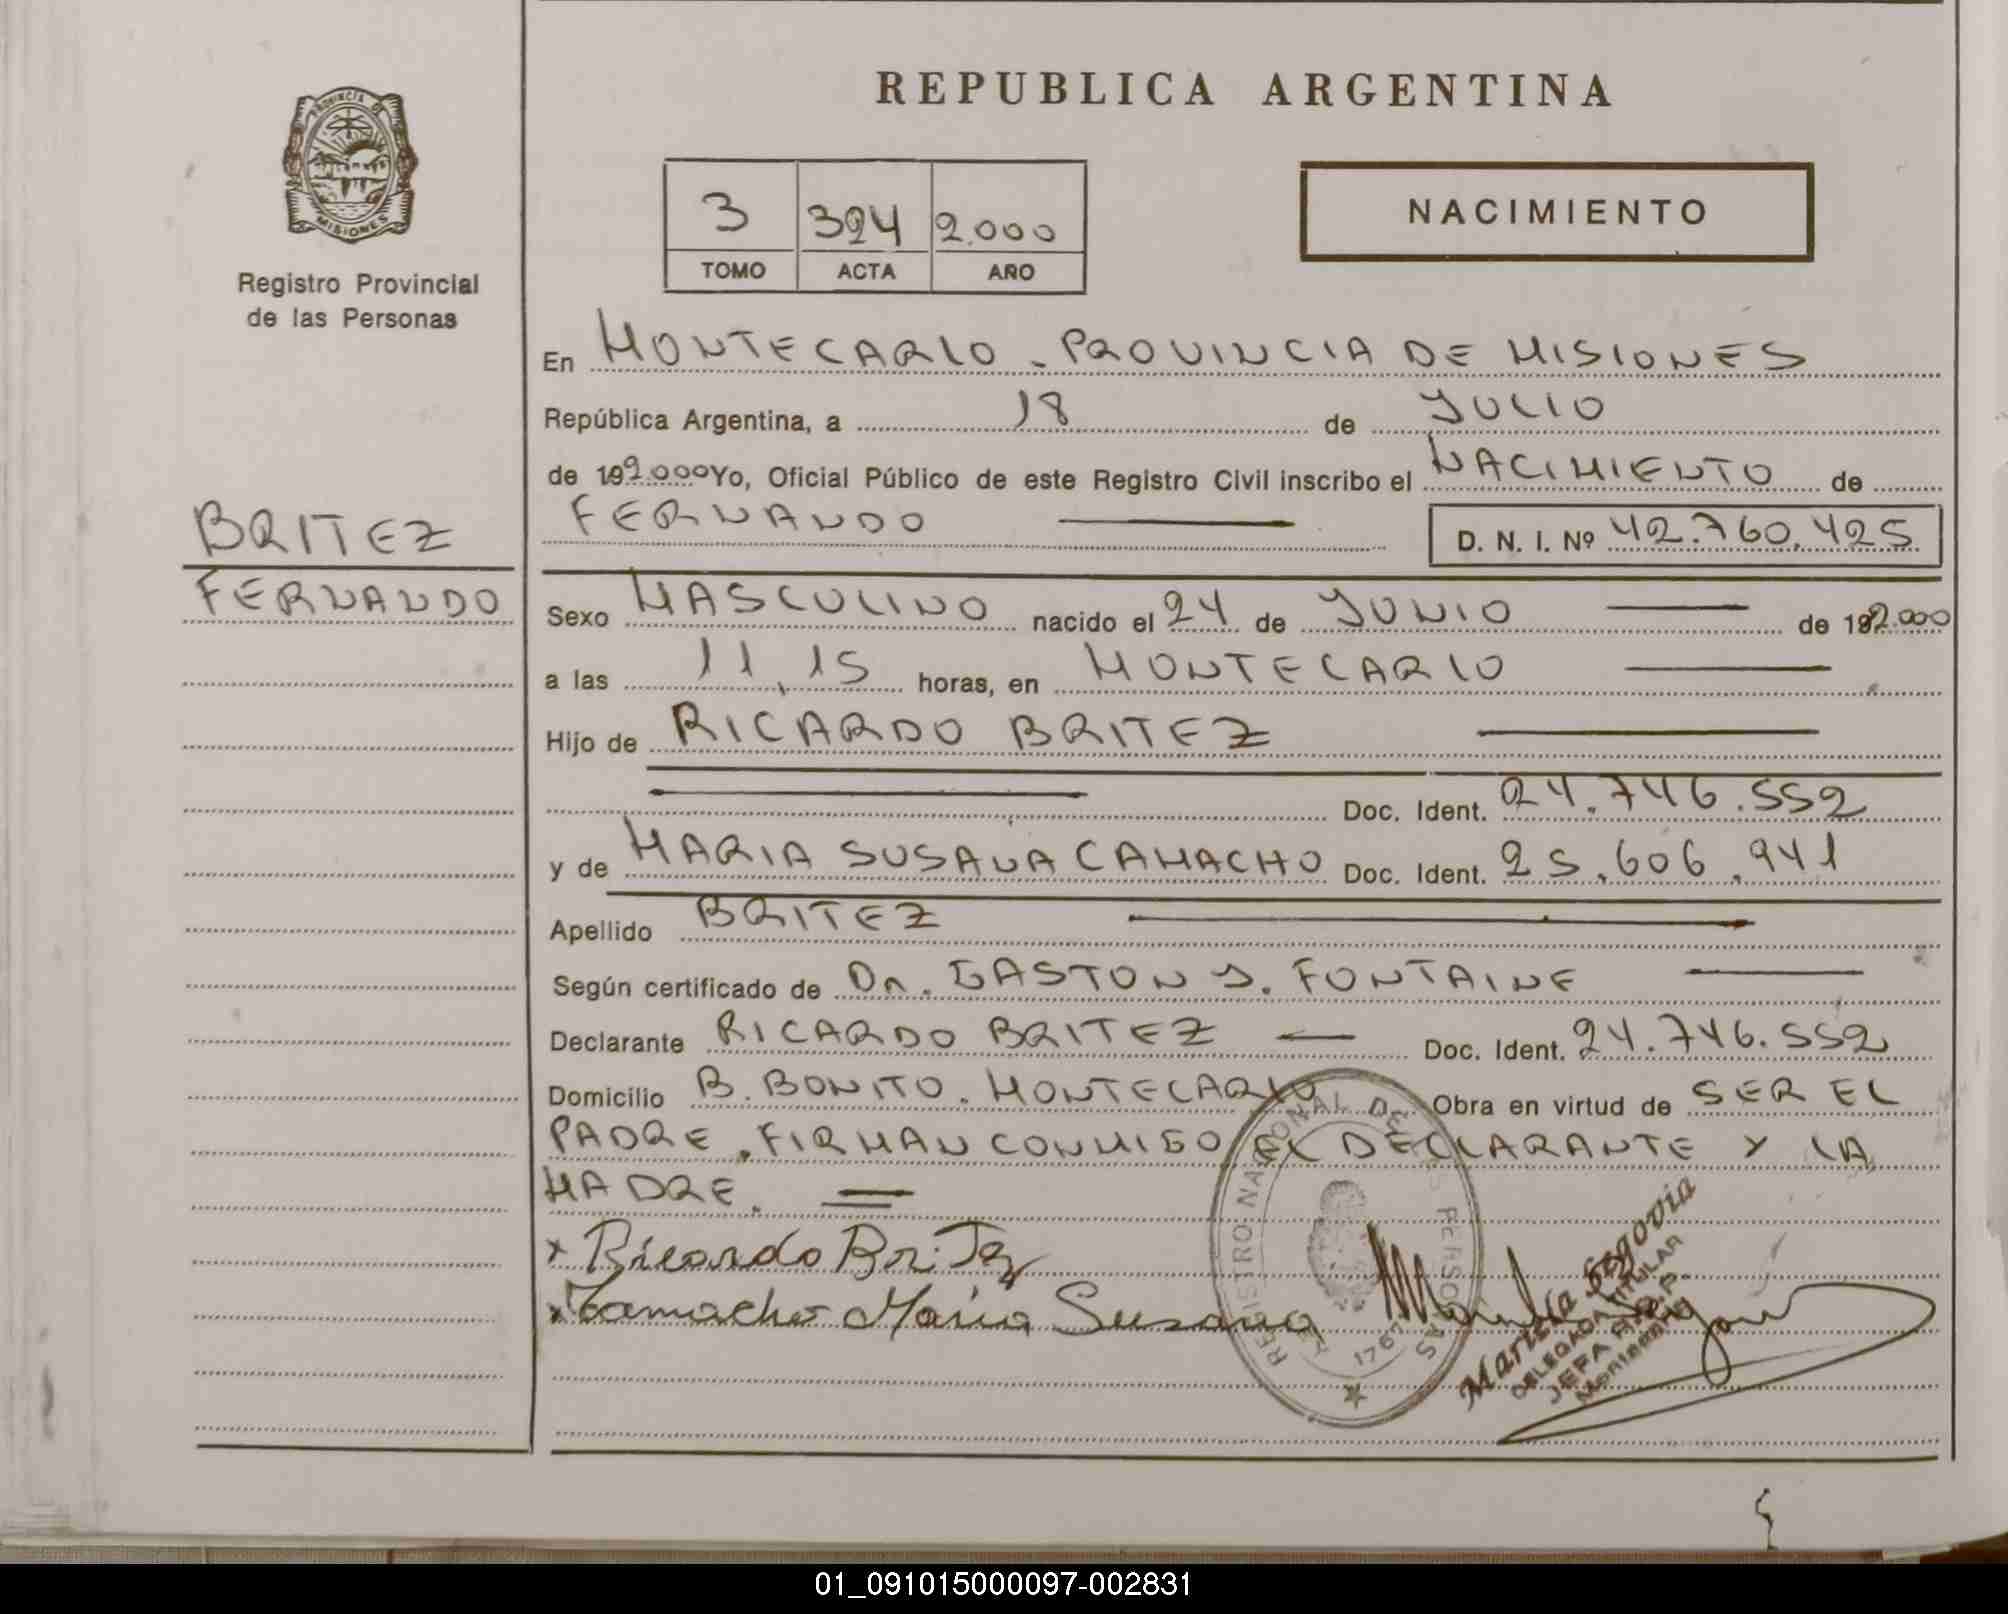 REPUBLICA ARGENTINA
PROVINCIA DE
MISIONES
Registro Provincial
de las Personas
3 324 2.000
TOMO ACTA AÑO
NACIMIENTO
En MONTECARLO - PROVINCIA DE MISIONES
República Argentina, a 18 de JULIO
de 192.000 Yo, Oficial Público de este Registro Civil inscribo el NACIMIENTO de
FERNANDO
D. N. I. Nº 42.760.425
BRITEZ
FERNANDO
Sexo MASCULINO nacido el 24 de JUNIO de 192.000
a las 11,15 horas, en MONTECARLO
Hijo de RICARDO BRITEZ
Doc. Ident. 24.746.552
y de MARIA SUSANA CAMACHO Doc. Ident. 25.606.941
Apellido BRITEZ
Según certificado de Dr. GASTON J. FONTAINE
Declarante RICARDO BRITEZ Doc. Ident. 24.746.552
Domicilio B. BONITO. MONTECARLO Obra en virtud de SER EL
PADRE. FIRMAN CONMIGO EL DECLARANTE Y LA
MADRE.
x Ricardo Britez
x Camacho Maria Susana
REGISTRO NACIONAL DE LAS PERSONAS
1767
Marisa Segovia
DELEGADA TITULAR
JEFA R.P.
Montecarlo
01_091015000097-002831